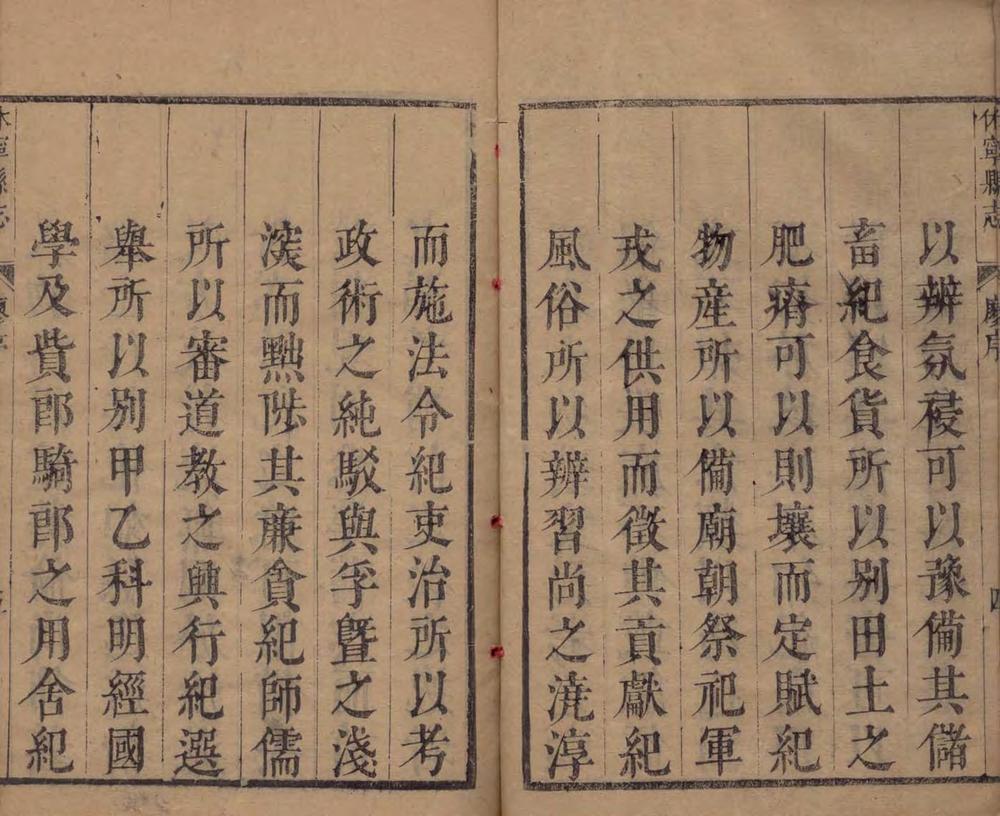 休寧縣志
以辨氛祲可以豫備其儲
畜紀食貨所以别田土之
肥瘠可以則壤而定賦紀
物產所以備廟朝祭祀軍
戎之供用而徵其貢獻紀
風俗所以辨習尚之澆淳
而施法令紀吏治所以考
政術之純駁與孚曁之淺
深而黜陟其亷貪紀師儒
所以審道教之興行紀選
舉所以别甲乙科明經國
學及貲郎騎郎之用舍紀
休寧縣志